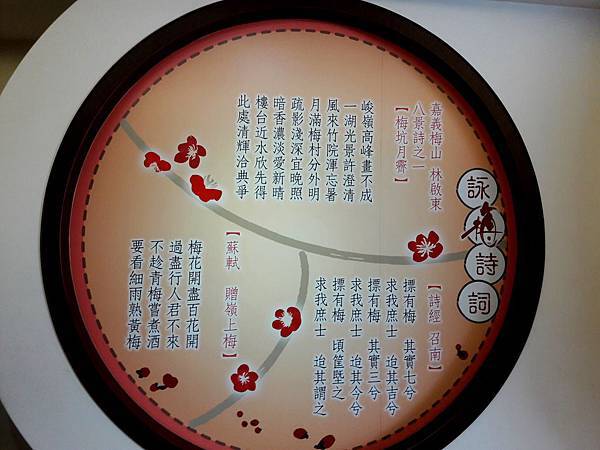 詠梅詩詞
嘉義梅山 林啟東
八景詩之一
【梅坑月霽】
峻嶺高峰畫不成
一湖光景許澄清
風來竹院渾忘暑
月滿梅村分外明
疏影淺深宜晚照
暗香濃淡愛新晴
樓台近水欣先得
此處清輝洽典爭
【詩經 召南】
摽有梅 其實七兮
求我庶士 迨其吉兮
摽有梅 其實三兮
求我庶士 迨其今兮
摽有梅 頃筐塈之
求我庶士 迨其謂之
【蘇軾 贈嶺上梅】
梅花開盡百花開
過盡行人君不來
不趁青梅嘗煮酒
要看細雨熟黃梅